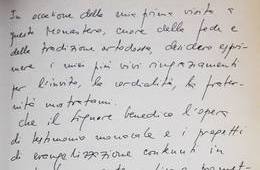 In occasione della mia prima visita a
questo Monastero, cuore della fede e
della tradizione ortodossa, desidero espri-
mere i miei più vivi ringraziamenti
per l'invito, la cordialità, la frater-
nità mostratami.
Che il Signore benedica l'opera
di testimonio monacale e i progetti
di evangelizzazione contenuti in